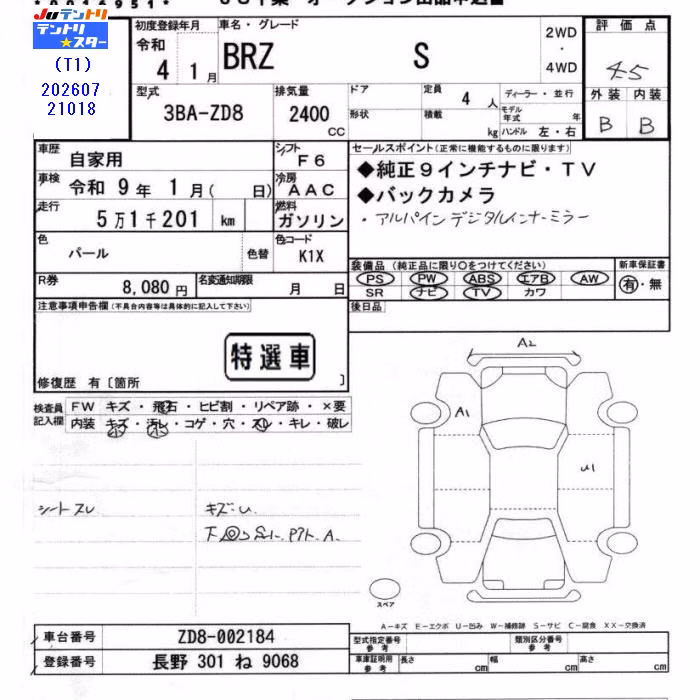 Juテントリ
テントリ★スター
(T1)
202607
21018
初度登録年月
令和
4 1月
車名・グレード
BRZ S
2WD
・
4WD
評価点
4.5
外装 内装
B B
型式
3BA-ZD8
排気量
2400
CC
ドア
形状
定員 4人
積載 kg
ディーラー・並行
モデル年式 年
ハンドル 左・右
車歴 自家用
シフト F6
車検 令和 9年 1月( 日)
冷房 AAC
走行 5万1千201 km
燃料 ガソリン
色 パール
色替
色コード K1X
R券 8,080円
名変通知期限 月 日
セールスポイント(正常に機能するものに限ります)
◆純正9インチナビ・TV
◆バックカメラ
・アルパインデジタルインナーミラー
装備品(純正品に限り○をつけてください)
PS PW ABS エアB AW
SR ナビ TV カワ
新車保証書
有・無
後日品
注意事項申告欄(不具合内容等は具体的に記入して下さい)
特選車
修復歴 有〔箇所 〕
検査員記入欄
FW キズ・飛石・ヒビ割・リペア跡・×要
内装 キズ・汚レ・コゲ・穴・スレ・キレ・破レ
シートスレ
キズ・U
A2
A1
U1
スペア
A-キズ E-エクボ U-凹み W-補修跡 S-サビ C-腐食 XX-交換済
車台番号 ZD8-002184
登録番号 長野 301 ね 9068
型式指定番号 参考
類別区分番号 参考
車庫証明用 参考
長さ cm 幅 cm 高さ cm